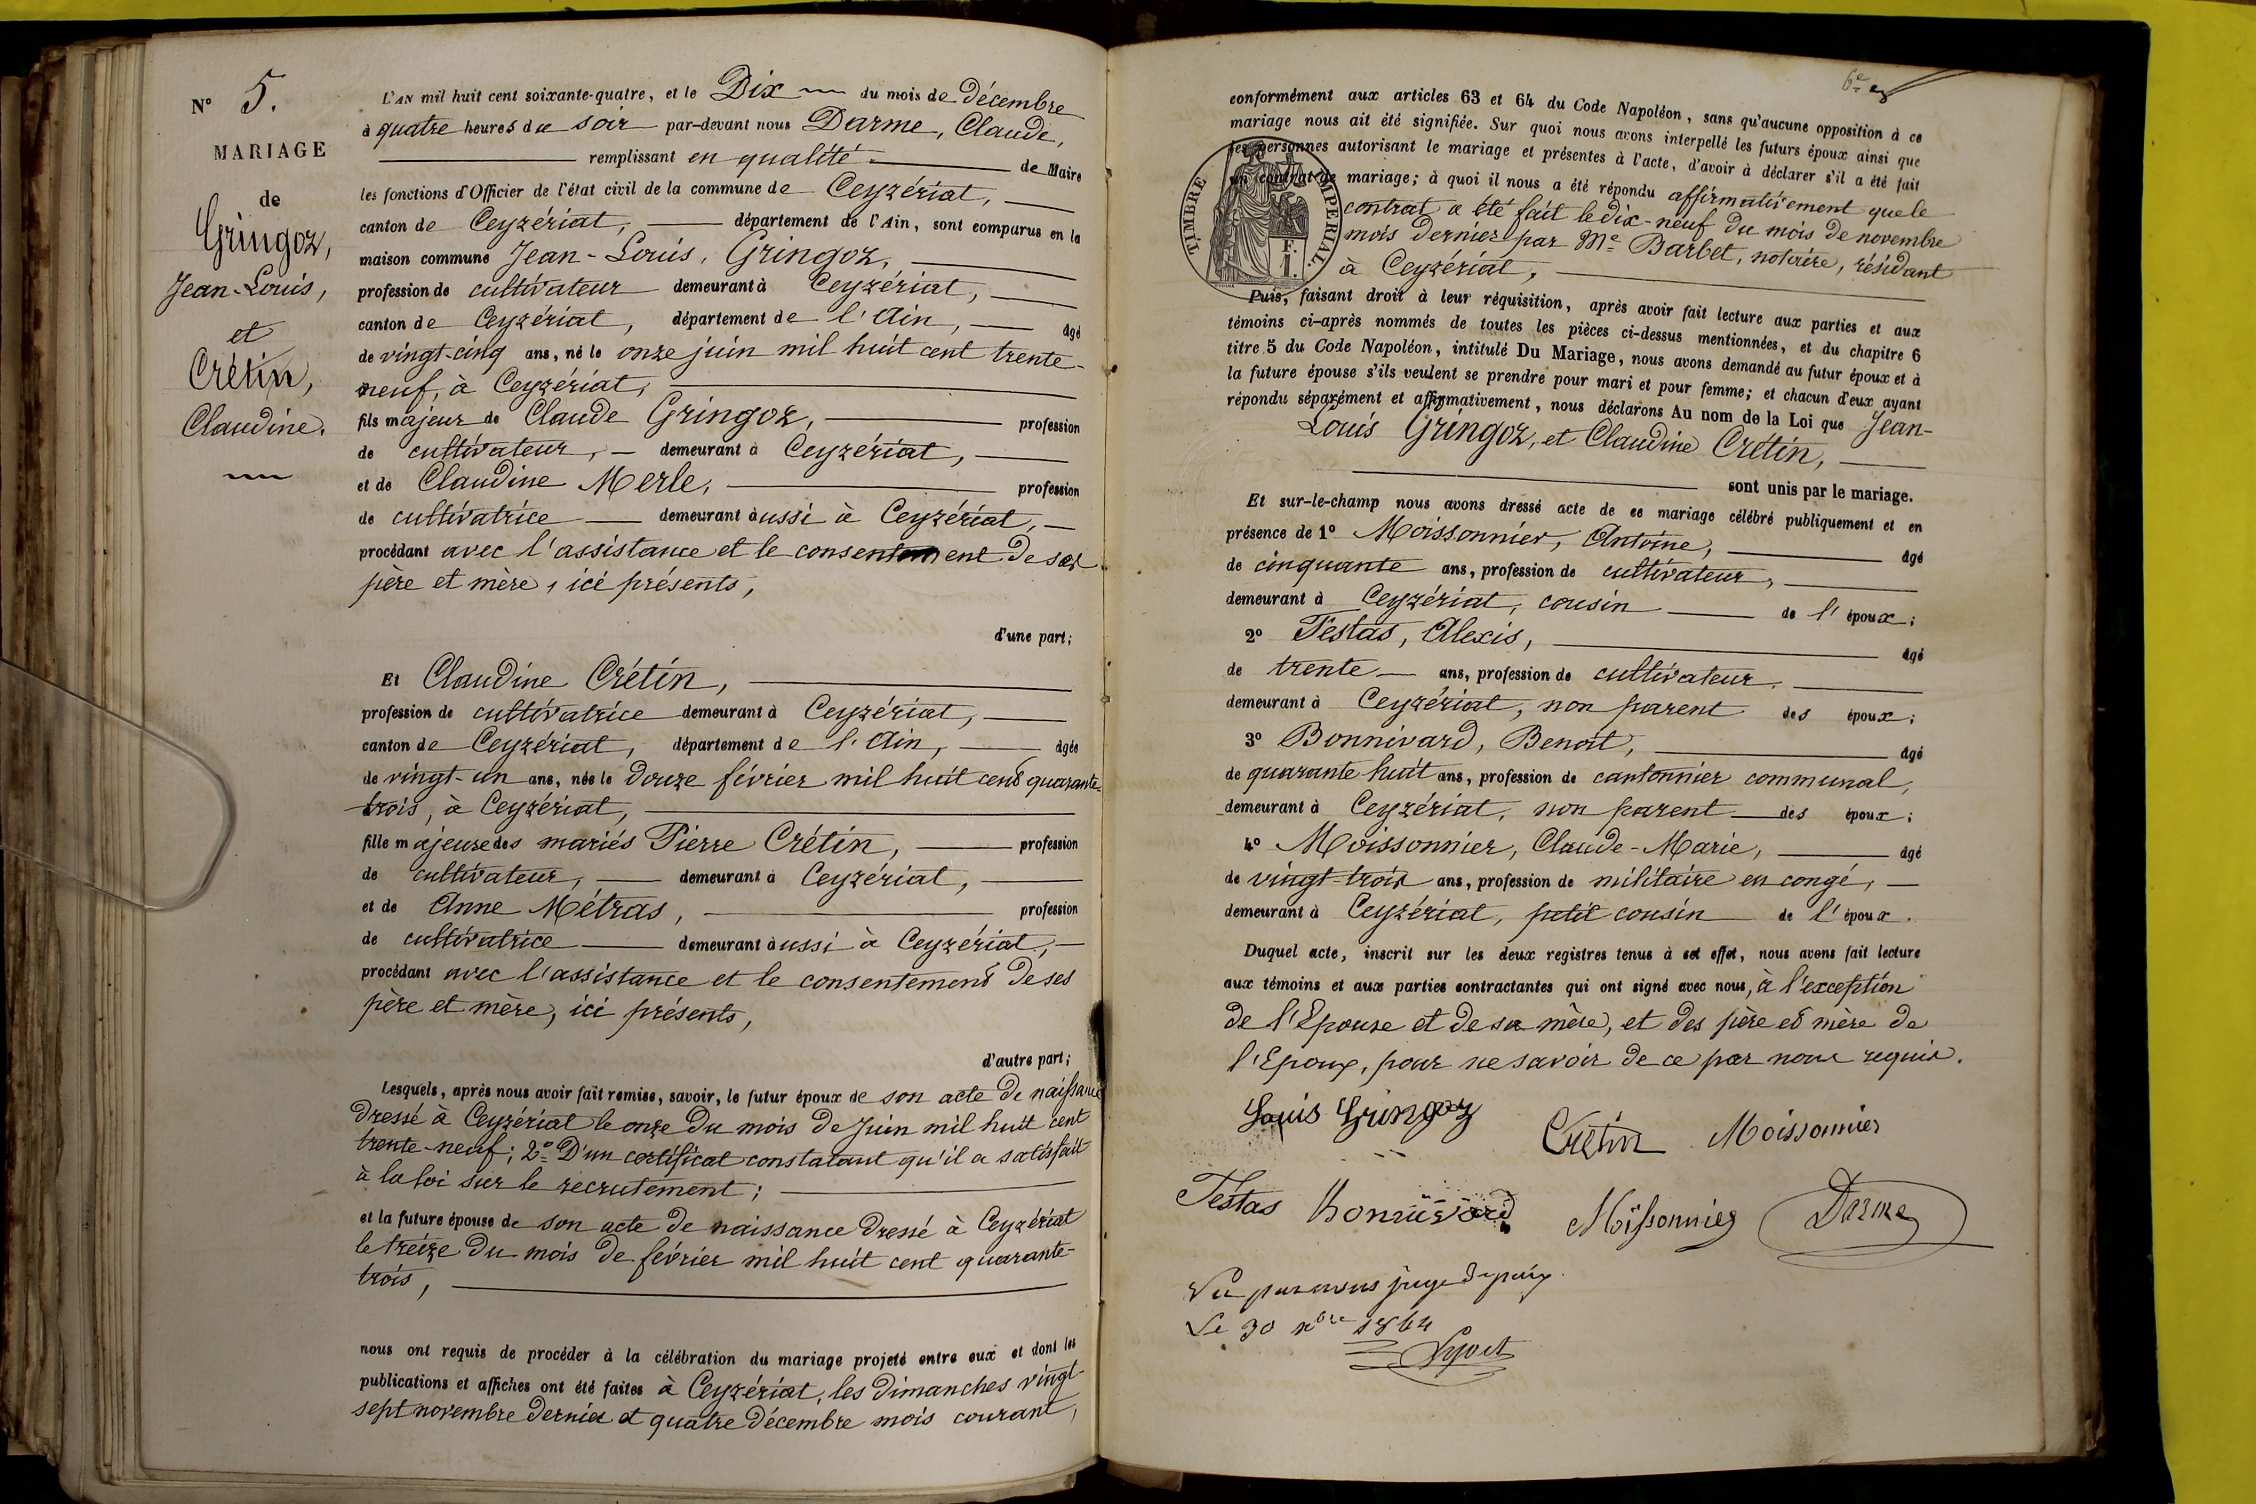 N° 5.
MARIAGE
de
Gringoz,
Jean-Louis,
et
Crétin,
Claudine.
L'AN mil huit cent soixante-quatre, et le Dix du mois de décembre
à quatre heures du soir par-devant nous Darme, Claude,
remplissant en qualité de Maire
les fonctions d'Officier de l'état civil de la commune de Ceyzériat,
canton de Ceyzériat, département de l'Ain, sont comparus en la
maison commune Jean-Louis, Gringoz,
profession de cultivateur demeurant à Ceyzériat,
canton de Ceyzériat, département de l'Ain, âgé
de vingt-cinq ans, né le onze juin mil huit cent trente-
neuf, à Ceyzériat,
fils majeur de Claude Gringoz, profession
de cultivateur, demeurant à Ceyzériat,
et de Claudine Merle, profession
de cultivatrice demeurant aussi à Ceyzériat,
procédant avec l'assistance et le consentement de ses
père et mère, ici présents,
d'une part;
Et Claudine Crétin,
profession de cultivatrice demeurant à Ceyzériat,
canton de Ceyzériat, département de l'Ain, âgée
de vingt-un ans, née le douze février mil huit cent quarante
trois, à Ceyzériat,
fille majeure des mariés Pierre Crétin, profession
de cultivateur, demeurant à Ceyzériat,
et de Anne Métras, profession
de cultivatrice demeurant aussi à Ceyzériat,
procédant avec l'assistance et le consentement de ses
père et mère, ici présents,
d'autre part;
Lesquels, après nous avoir fait remise, savoir, le futur époux de son acte de naissance
dressé à Ceyzériat le onze du mois de Juin mil huit cent
trente-neuf; 2° D'un certificat constatant qu'il a satisfait
à la loi sur le recrutement;
et la future épouse de son acte de naissance dressé à Ceyzériat
le treize du mois de février mil huit cent quarante-
trois,
nous ont requis de procéder à la célébration du mariage projeté entre eux et dont les
publications et affiches ont été faites à Ceyzériat, les dimanches vingt-
sept novembre dernier et quatre décembre mois courant,
6e
conformément aux articles 63 et 64 du Code Napoléon, sans qu'aucune opposition à ce
mariage nous ait été signifiée. Sur quoi nous avons interpellé les futurs époux ainsi que
les personnes autorisant le mariage et présentes à l'acte, d'avoir à déclarer s'il a été fait
un contrat de mariage; à quoi il nous a été répondu affirmativement que le
contrat a été fait le dix-neuf du mois de novembre
mois dernier par Me Barbet, notaire, résidant
à Ceyzériat,
TIMBRE IMPERIAL.
F.
1.
Puis, faisant droit à leur réquisition, après avoir fait lecture aux parties et aux
témoins ci-après nommés de toutes les pièces ci-dessus mentionnées, et du chapitre 6
titre 5 du Code Napoléon, intitulé Du Mariage, nous avons demandé au futur époux et à
la future épouse s'ils veulent se prendre pour mari et pour femme; et chacun d'eux ayant
répondu séparément et affirmativement, nous déclarons Au nom de la Loi que Jean-
Louis Gringoz, et Claudine Crétin,
sont unis par le mariage.
Et sur-le-champ nous avons dressé acte de ce mariage célébré publiquement et en
présence de 1° Moissonnier, Antoine, âgé
de cinquante ans, profession de cultivateur,
demeurant à Ceyzériat, cousin de l'époux;
2° Testas, Alexis, âgé
de trente ans, profession de cultivateur,
demeurant à Ceyzériat, non parent des époux;
3° Bonnivard, Benoit, âgé
de quarante huit ans, profession de cantonnier communal,
demeurant à Ceyzériat, non parent des époux;
4° Moissonnier, Claude-Marie, âgé
de vingt-trois ans, profession de militaire en congé,
demeurant à Ceyzériat, petit cousin de l'époux.
Duquel acte, inscrit sur les deux registres tenus à cet effet, nous avons fait lecture
aux témoins et aux parties contractantes qui ont signé avec nous, à l'exception
de l'Epouse et de sa mère, et des père et mère de
l'Epoux, pour ne savoir de ce par nous requis.
Louis Gringoz
Crétin Moissonnier
Testas Bonnivard Moissonnier Darme
Vu par nous juge de paix
Le 30 xbre 1864